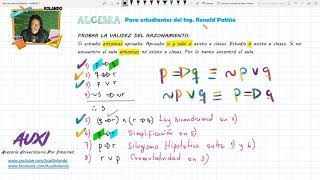 ROLANDO
ALGEBRA Para estudiantes del Ing. Renold Patiño
PROBAR LA VALIDEZ DEL RAZONAMIENTO:
Si estudio entonces apruebo. Apruebo si y solo si asisto a clases. Estudio o asisto a clases. Si no
encuentro el aula entonces no asisto a clases. Por lo tanto encontré el aula.
1) p → q
2) q ↔ r
3) p ∨ r
4) ~s → ~r
∴ s
p → q ≡ ~p ∨ q
p → q ≡ ~p ∨ q
5) (q → r) ∧ (r → q) Ley bicondicional en 2)
6) q → r Simplificación en 5)
7) p → r Silogismo Hipotético entre 1) y 6)
8) r ∨ p Conmutatividad en 3)
AUXI
Asesoría Universitaria Por Internet
www.youtube.com/AuxiRolando
www.facebook.com/AuxiRolando